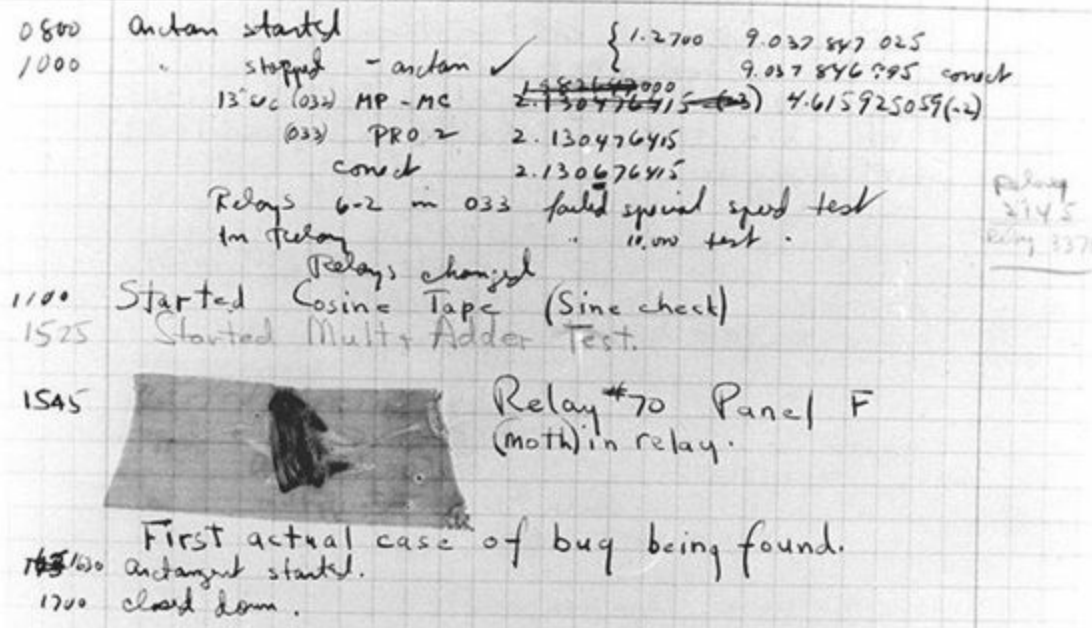 0800 arctan started { 1.2700 9.037 847 025
1000 " stopped - arctan ✓ 9.037 846 795 correct
13"uc (032) MP - MC 2.130476415 (-3) 4.615925059(-2)
(033) PRO 2 2.130476415
correct 2.130676415
Relays 6-2 in 033 failed special speed test
In Relay " 10,000 test .
Relay
2145
Relay 337
Relays changed
1100 Started Cosine Tape (Sine check)
1525 Started Mult + Adder Test.
1545 Relay #70 Panel F
(moth) in relay.
First actual case of bug being found.
1630 arctangent started.
1700 closed down.